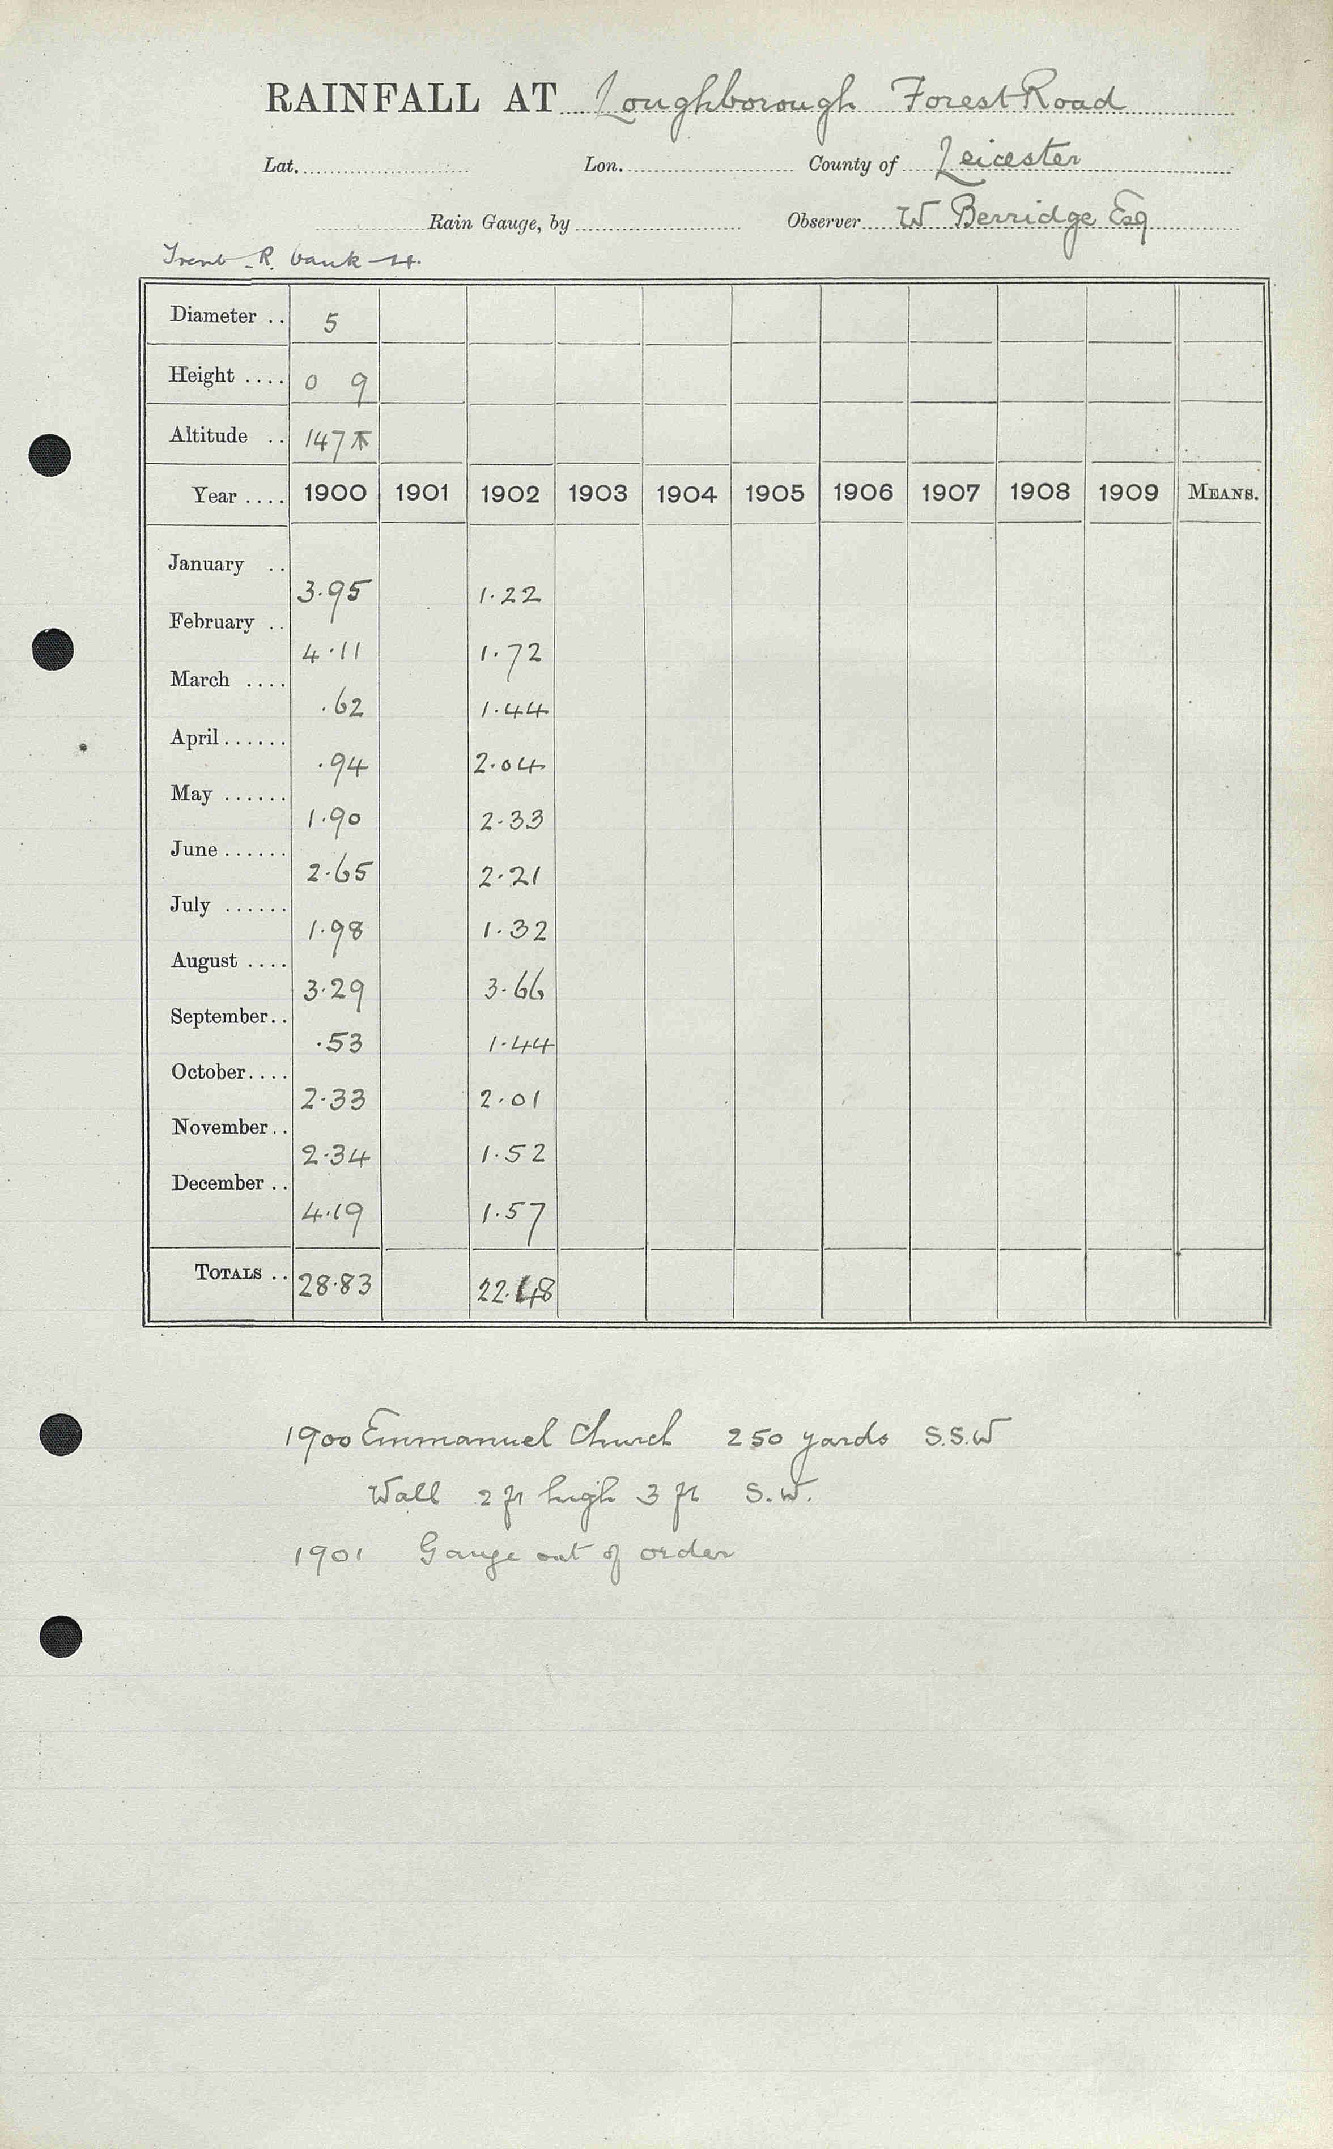 RAINFALL AT Loughborough Forest Road
Lat. Lon. County of Leicester
Rain Gauge, by Observer W Berridge Esq
Trent R. bank
Diameter .. 5
Height .... 0 9
Altitude .. 147
Year .... 1900 1901 1902 1903 1904 1905 1906 1907 1908 1909 MEANS.
January .. 3.95 1.22
February .. 4.11 1.72
March .... .62 1.44
April ...... .94 2.04
May ...... 1.90 2.33
June ...... 2.65 2.21
July ...... 1.98 1.32
August .... 3.29 3.66
September.. .53 1.44
October.... 2.33 2.01
November.. 2.34 1.52
December .. 4.19 1.57
TOTALS .. 28.83 22.48
1900 Emmanuel Church 250 yards S.S.W
Wall 2 ft high 3 ft S.W.
1901 Gauge out of order